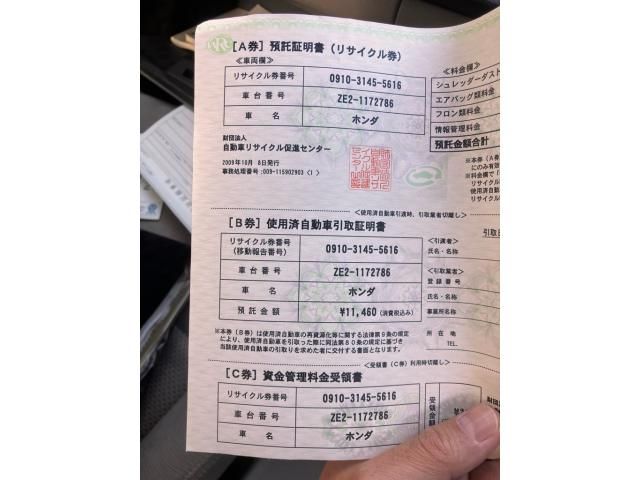 [A券] 預託証明書 (リサイクル券)
≪車両欄≫
リサイクル券番号 0910-3145-5616
車台番号 ZE2-1172786
車名 ホンダ
≪料金欄≫
シュレッダーダスト
エアバッグ類料金
フロン類料金
情報管理料金
預託金額合計
財団法人
自動車リサイクル促進センター
2009年10月 8日発行
事務処理番号:009-115902903〈1〉
※本券(A券
にのみ有効
※料金欄で「
リサイクル
リサイクル
使用済自動
<使用済自動車引渡時、引取業者切離し>
[B券] 使用済自動車引取証明書
引取日
リサイクル券番号
(移動報告番号) 0910-3145-5616
車台番号 ZE2-1172786
車名 ホンダ
預託金額 ¥11,460 (消費税込み)
<引渡者>
氏名・名称
<引取業者>
登録番号
氏名・名称
事業所名称
所在地
TEL.
※本券(B券)は使用済自動車の再資源化等に関する法律第9条の規定
により、使用済自動車を引取った際に同法第80条の規定に基づき
当該使用済自動車の引取りを求めた者に交付する書面となります。
<受領書(C券)利用時切離し>
[C券] 資金管理料金受領書
リサイクル券番号 0910-3145-5616
車台番号 ZE2-1172786
車名 ホンダ
受領金額